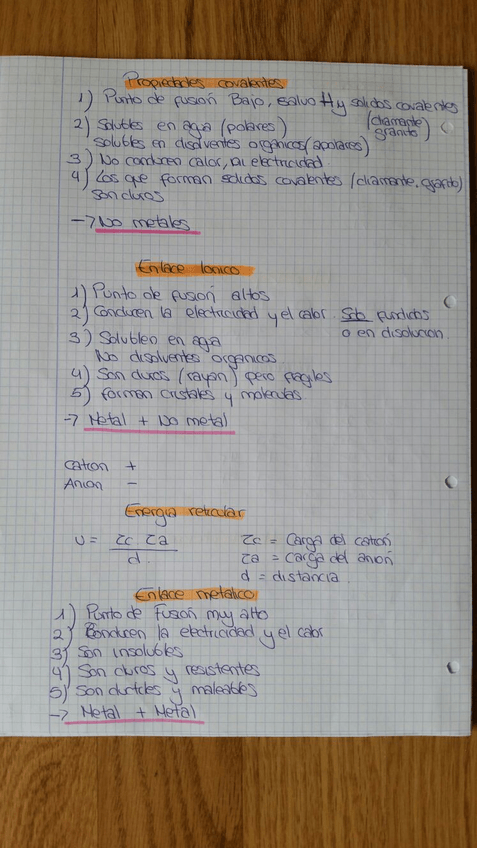 Propiedades covalentes
1) Punto de fusión Bajo, salvo H y solidos covalentes
(diamante
grafito)
2) Solubles en agua (polares)
solubles en disolventes organicos (apolares)
3) No conducen calor, ni electricidad
4) Los que forman solidos covalentes (diamante, grafito)
son duros
→ No metales
Enlace Ionico
1) Punto de fusión altos
2) Conducen la electricidad y el calor. Solo fundidos
o en disolucion
3) Solublen en agua
No disolventes organicos
4) Son duros (rayan) pero fragiles
5) Forman cristales y moleculas
→ Metal + No metal
Cation +
Anion −
Energia reticular
U = Zc Za / d.
Zc = Carga del catión
Za = Carga del anión
d = distancia
Enlace metalico
1) Punto de Fusión muy alto
2) Conducen la electricidad y el calor
3) Son insolubles
4) Son duros y resistentes
5) Son ductiles y maleables
→ Metal + Metal